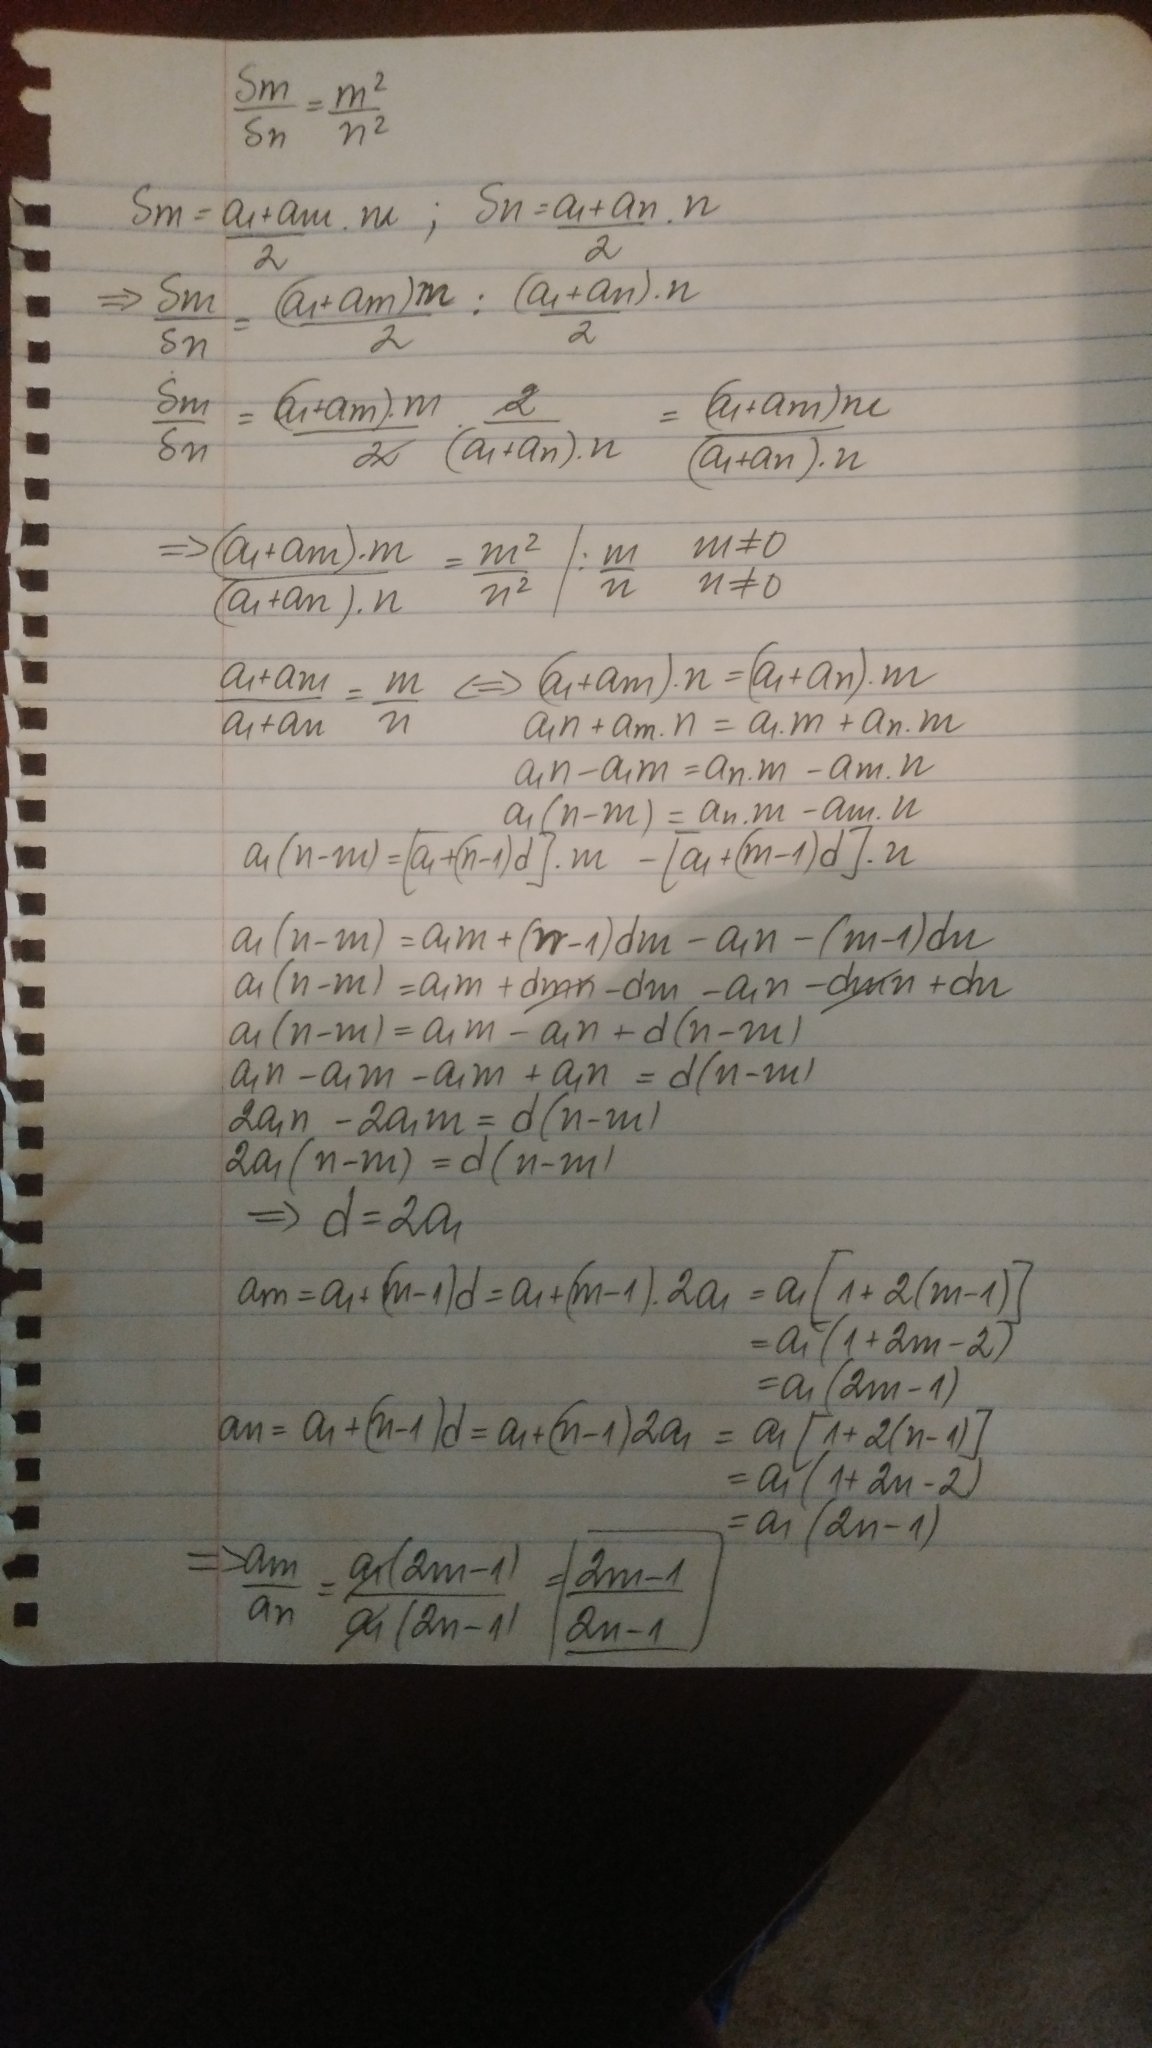 Sm/Sn = m²/n²
Sm = (a₁+am)/2 . m ; Sn = (a₁+an)/2 . n
=> Sm/Sn = (a₁+am)m/2 : (a₁+an).n/2
Sm/Sn = (a₁+am).m/2 . 2/(a₁+an).n = (a₁+am)m/(a₁+an).n
=> (a₁+am).m/(a₁+an).n = m²/n² | : m/n m≠0 n≠0
a₁+am/a₁+an = m/n <=> (a₁+am).n = (a₁+an).m
a₁n + am.n = a₁.m + an.m
a₁n - a₁m = an.m - am.n
a₁(n-m) = an.m - am.n
a₁(n-m) = [a₁+(n-1)d].m - [a₁+(m-1)d].n
a₁(n-m) = a₁m + (n-1)dm - a₁n - (m-1)dn
a₁(n-m) = a₁m + dmn - dm - a₁n - dmn + dn
a₁(n-m) = a₁m - a₁n + d(n-m)
a₁n - a₁m - a₁m + a₁n = d(n-m)
2a₁n - 2a₁m = d(n-m)
2a₁(n-m) = d(n-m)
=> d = 2a₁
am = a₁+(m-1)d = a₁+(m-1).2a₁ = a₁[1+2(m-1)]
= a₁(1+2m-2)
= a₁(2m-1)
an = a₁+(n-1)d = a₁+(n-1)2a₁ = a₁[1+2(n-1)]
= a₁(1+2n-2)
= a₁(2n-1)
=> am/an = a₁(2m-1)/a₁(2n-1) = 2m-1/2n-1